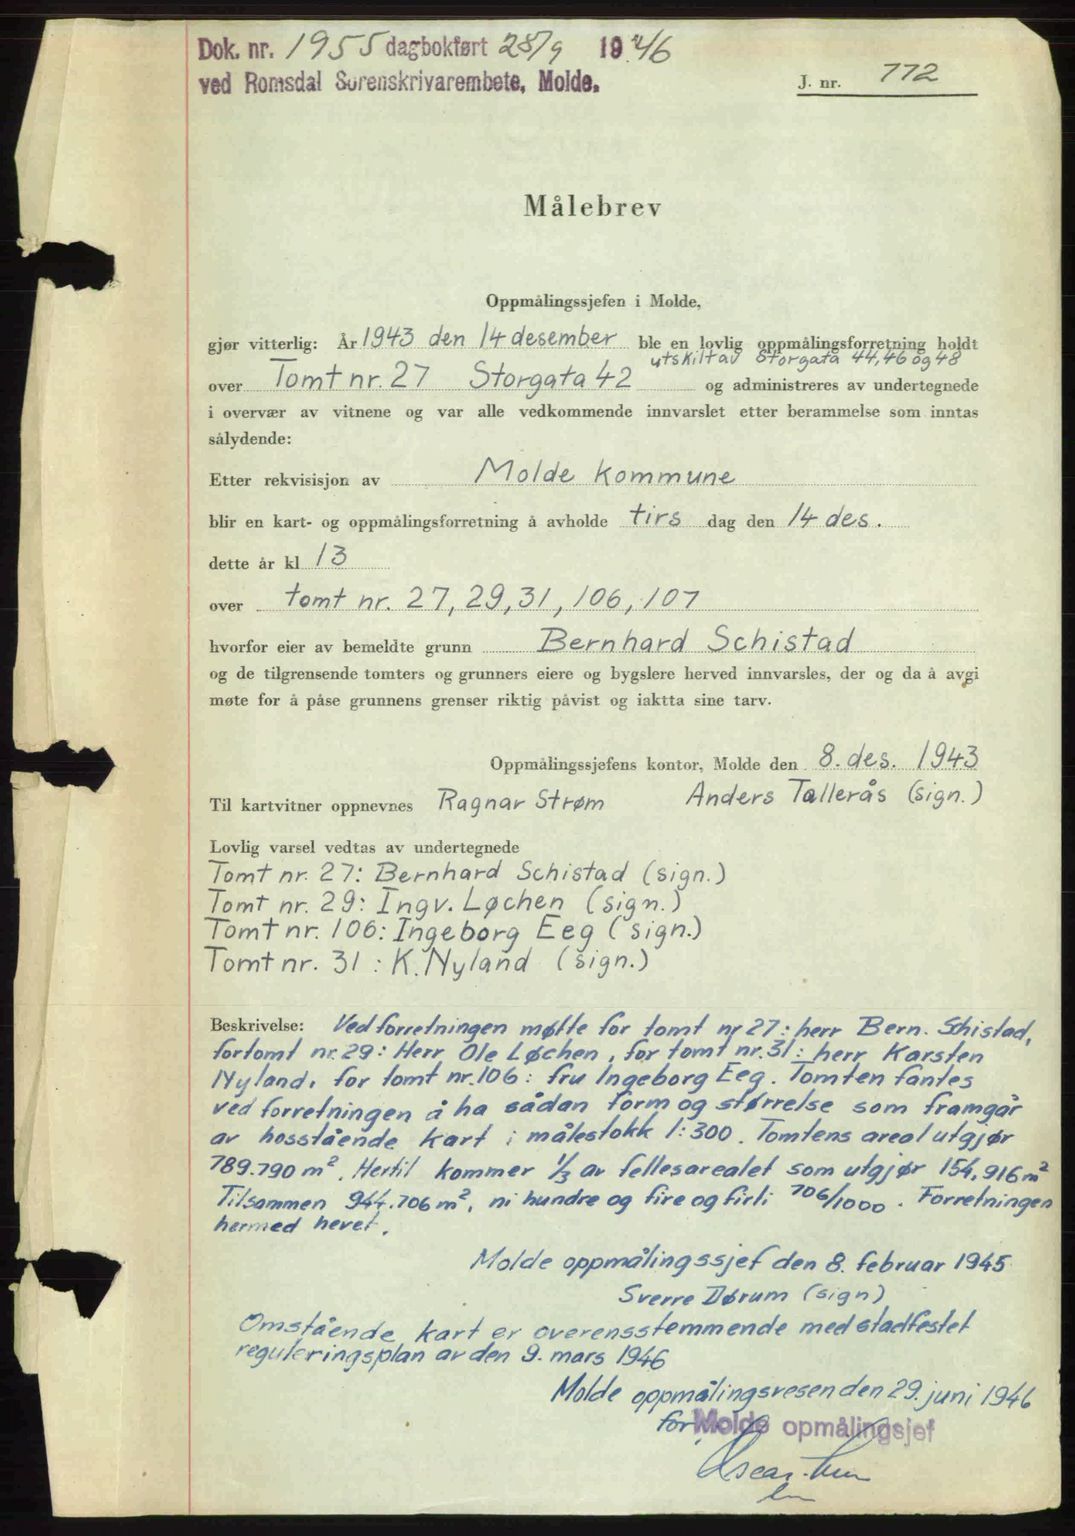 Dok. nr. 1955 dagbokført 28/9 1946
ved Romsdal Sorenskrivarembete, Molde.
J. nr. 772
Målebrev
Oppmålingssjefen i Molde,
gjør vitterlig: År 1943 den 14 desember ble en lovlig oppmålingsforretning holdt
utskilt av Storgata 44, 46 og 48
over Tomt nr. 27 Storgata 42 og administreres av undertegnede
i overvær av vitnene og var alle vedkommende innvarslet etter berammelse som inntas
sålydende:
Etter rekvisisjon av Molde kommune
blir en kart- og oppmålingsforretning å avholde tirs dag den 14 des.
dette år kl 13
over tomt nr. 27, 29, 31, 106, 107
hvorfor eier av bemeldte grunn Bernhard Schistad
og de tilgrensende tomters og grunners eiere og bygslere herved innvarsles, der og da å avgi
møte for å påse grunnens grenser riktig påvist og iaktta sine tarv.
Oppmålingssjefens kontor, Molde den 8. des. 1943
Til kartvitner oppnevnes Ragnar Strøm Anders Tallerås (sign.)
Lovlig varsel vedtas av undertegnede
Tomt nr. 27: Bernhard Schistad (sign.)
Tomt nr. 29: Ingv. Løchen (sign.)
Tomt nr. 106: Ingeborg Eeg (sign.)
Tomt nr. 31: K. Nyland (sign.)
Beskrivelse: Ved forretningen møtte for tomt nr 27: herr Bern. Schistad,
for tomt nr. 29: Herr Ole Løchen, for tomt nr. 31: herr Karsten
Nyland, for tomt nr. 106: fru Ingeborg Eeg. Tomten fantes
ved forretningen å ha sådan form og størrelse som framgår
av hosstående kart i målestokk 1:300. Tomtens areal utgjør
789.790 m². Hertil kommer 1/3 av fellesarealet som utgjør 154,916 m²
Tilsammen 944.706 m², ni hundre og fire og firti 706/1000. Forretningen
hermed hevet.
Molde oppmålingssjef den 8. februar 1945
Sverre Dørum (sign)
Omstående kart er overensstemmende med stadfestet
reguleringsplan av den 9. mars 1946
Molde oppmålingsvesen den 29. juni 1946
for Molde opmålingsjef
Oscar